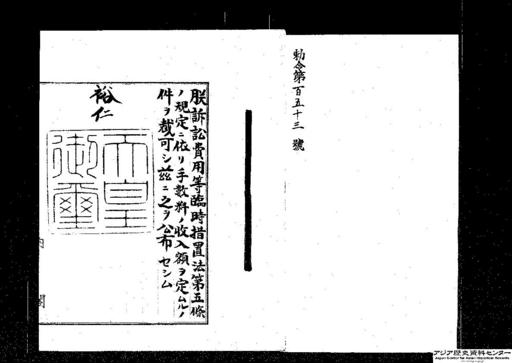 勅令第百五十三號
朕訴訟費用等臨時措置法第五條
ノ規定ニ依リ手數料ノ收入額ヲ定ムルノ
件ヲ裁可シ茲ニ之ヲ公布セシム
裕仁
天皇
御璽
内閣
アジア歴史資料センター
Japan Center for Asian Historical Records